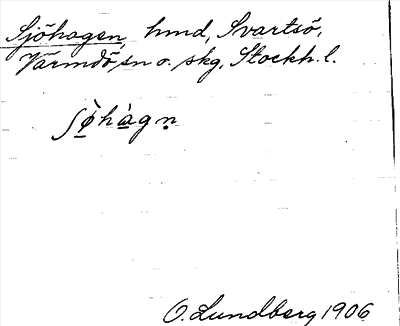 Sjöhagen, hmd, Svartsö,
Värmdö sn o. skg, Stockh. l.
ʃø̀hàgn̥
O. Lundberg 1906